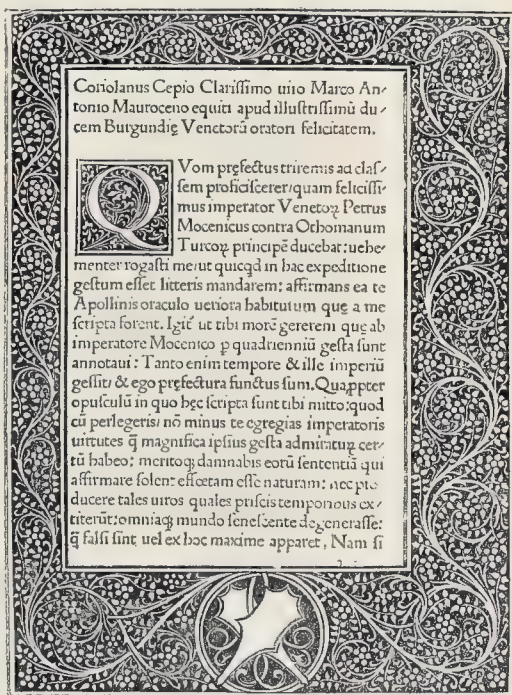 Coriolanus Cepio Clarissimo uiro Marco An-
tonio Mauroceno equiti apud illustrissimū du-
cem Burgundię Venetorū oratori felicitatem.
QVom pręfectus triremis ad clas-
sem proficiscerer: quam felicissi-
mus imperator Venetoꝝ Petrus
Mocenicus contra Othomanum
Turcoꝝ principē ducebat: uehe-
menter rogasti me: ut quicqd in hac expeditione
gestum esset litteris mandarem: affirmans ea te
Apollinis oraculo ueriora habiturum quę a me
scripta forent. Igit̄ ut tibi morē gererem quę ab
imperatore Mocenico ꝑ quadrienniū gesta sunt
annotaui: Tanto enim tempore & ille imperiū
gessit: & ego pręfectura functus sum. Quaꝓpter
opusculū in quo hęc scripta sunt tibi mitto: quod
cū perlegeris: nō minus te egregias imperatoris
uirtutes q̄ magnifica ipsius gesta admiraturū cer-
tū habeo: meritoqꝫ damnabis eorū sententiā qui
affirmare solent: effœtam esse naturam: nec pro
ducere tales uiros quales priscis temporibus ex-
titerūt: omniaqꝫ mundo senescente degenerasse:
q̄ falsi sint uel ex hoc maxime apparet. Nam si